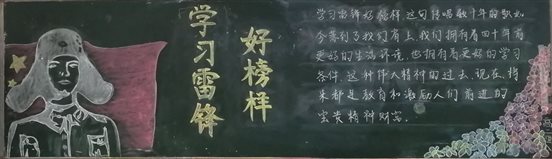 学习雷锋
好榜样
学习雷锋好榜样这句传唱数十年的歌儿
今落到了我们肩上,我们拥有着四十年前
更好的生活环境,也拥有着更好的学习
条件。这种伟人精神的过去、现在、将
来都是教育和激励人们前进的
宝贵精神财富。